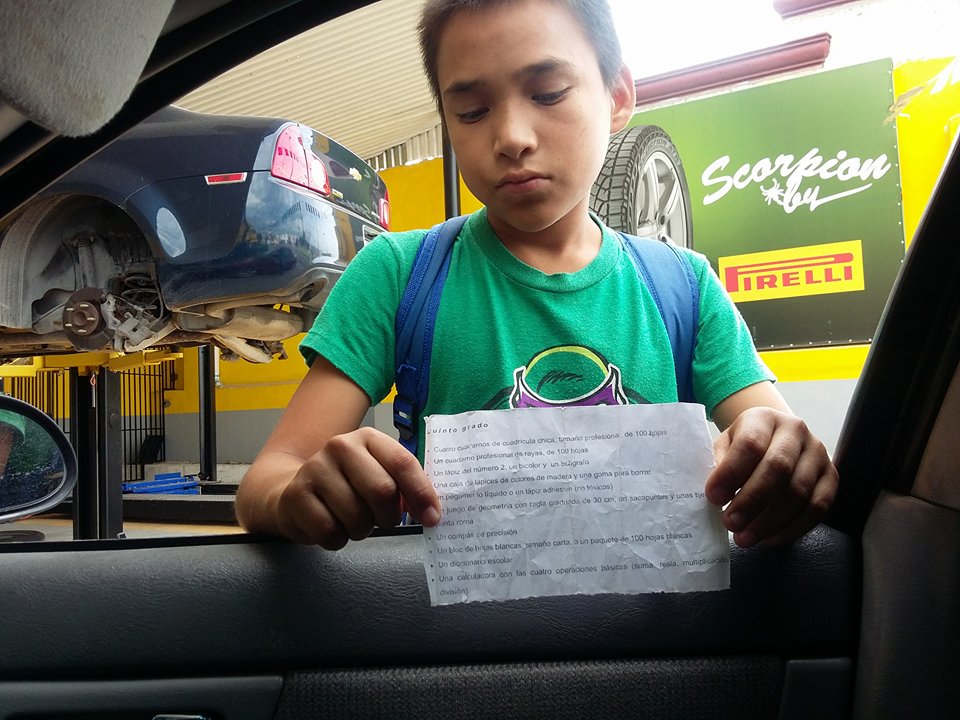 Scorpion
by
PIRELLI
Quinto grado
Cuatro cuadernos de cuadrícula chica, tamaño profesional, de 100 hojas
Un cuaderno profesional de rayas, de 100 hojas
Un lápiz del número 2, un bicolor y un bolígrafo
Una caja de lápices de colores de madera y una goma para borrar
Un pegamento líquido o un lápiz adhesivo (no tóxicos)
Un juego de geometría con regla graduada de 30 cm, un sacapuntas y unas tije
punta roma
• Un compás de precisión
• Un bloc de hojas blancas, tamaño carta, o un paquete de 100 hojas blancas
• Un diccionario escolar
• Una calculadora con las cuatro operaciones básicas (suma, resta, multiplicación
división)